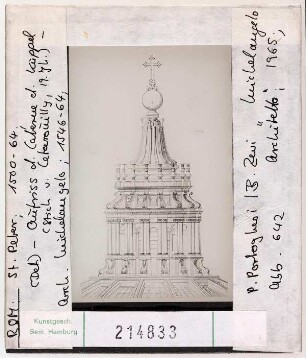 ROM. St. Peter, 1500-64.
(Det) - Aufriss d. Laterne d. Kuppel
(Stich v. Letarouilly, 19. Jh.) -
Arch. Michelangelo, 1546-64,
P. Portoghesi / B. Zevi "Michelangelo
Architetto" 1965,
Abb. 642
Kunstgesch.
Sem. Hamburg
214833